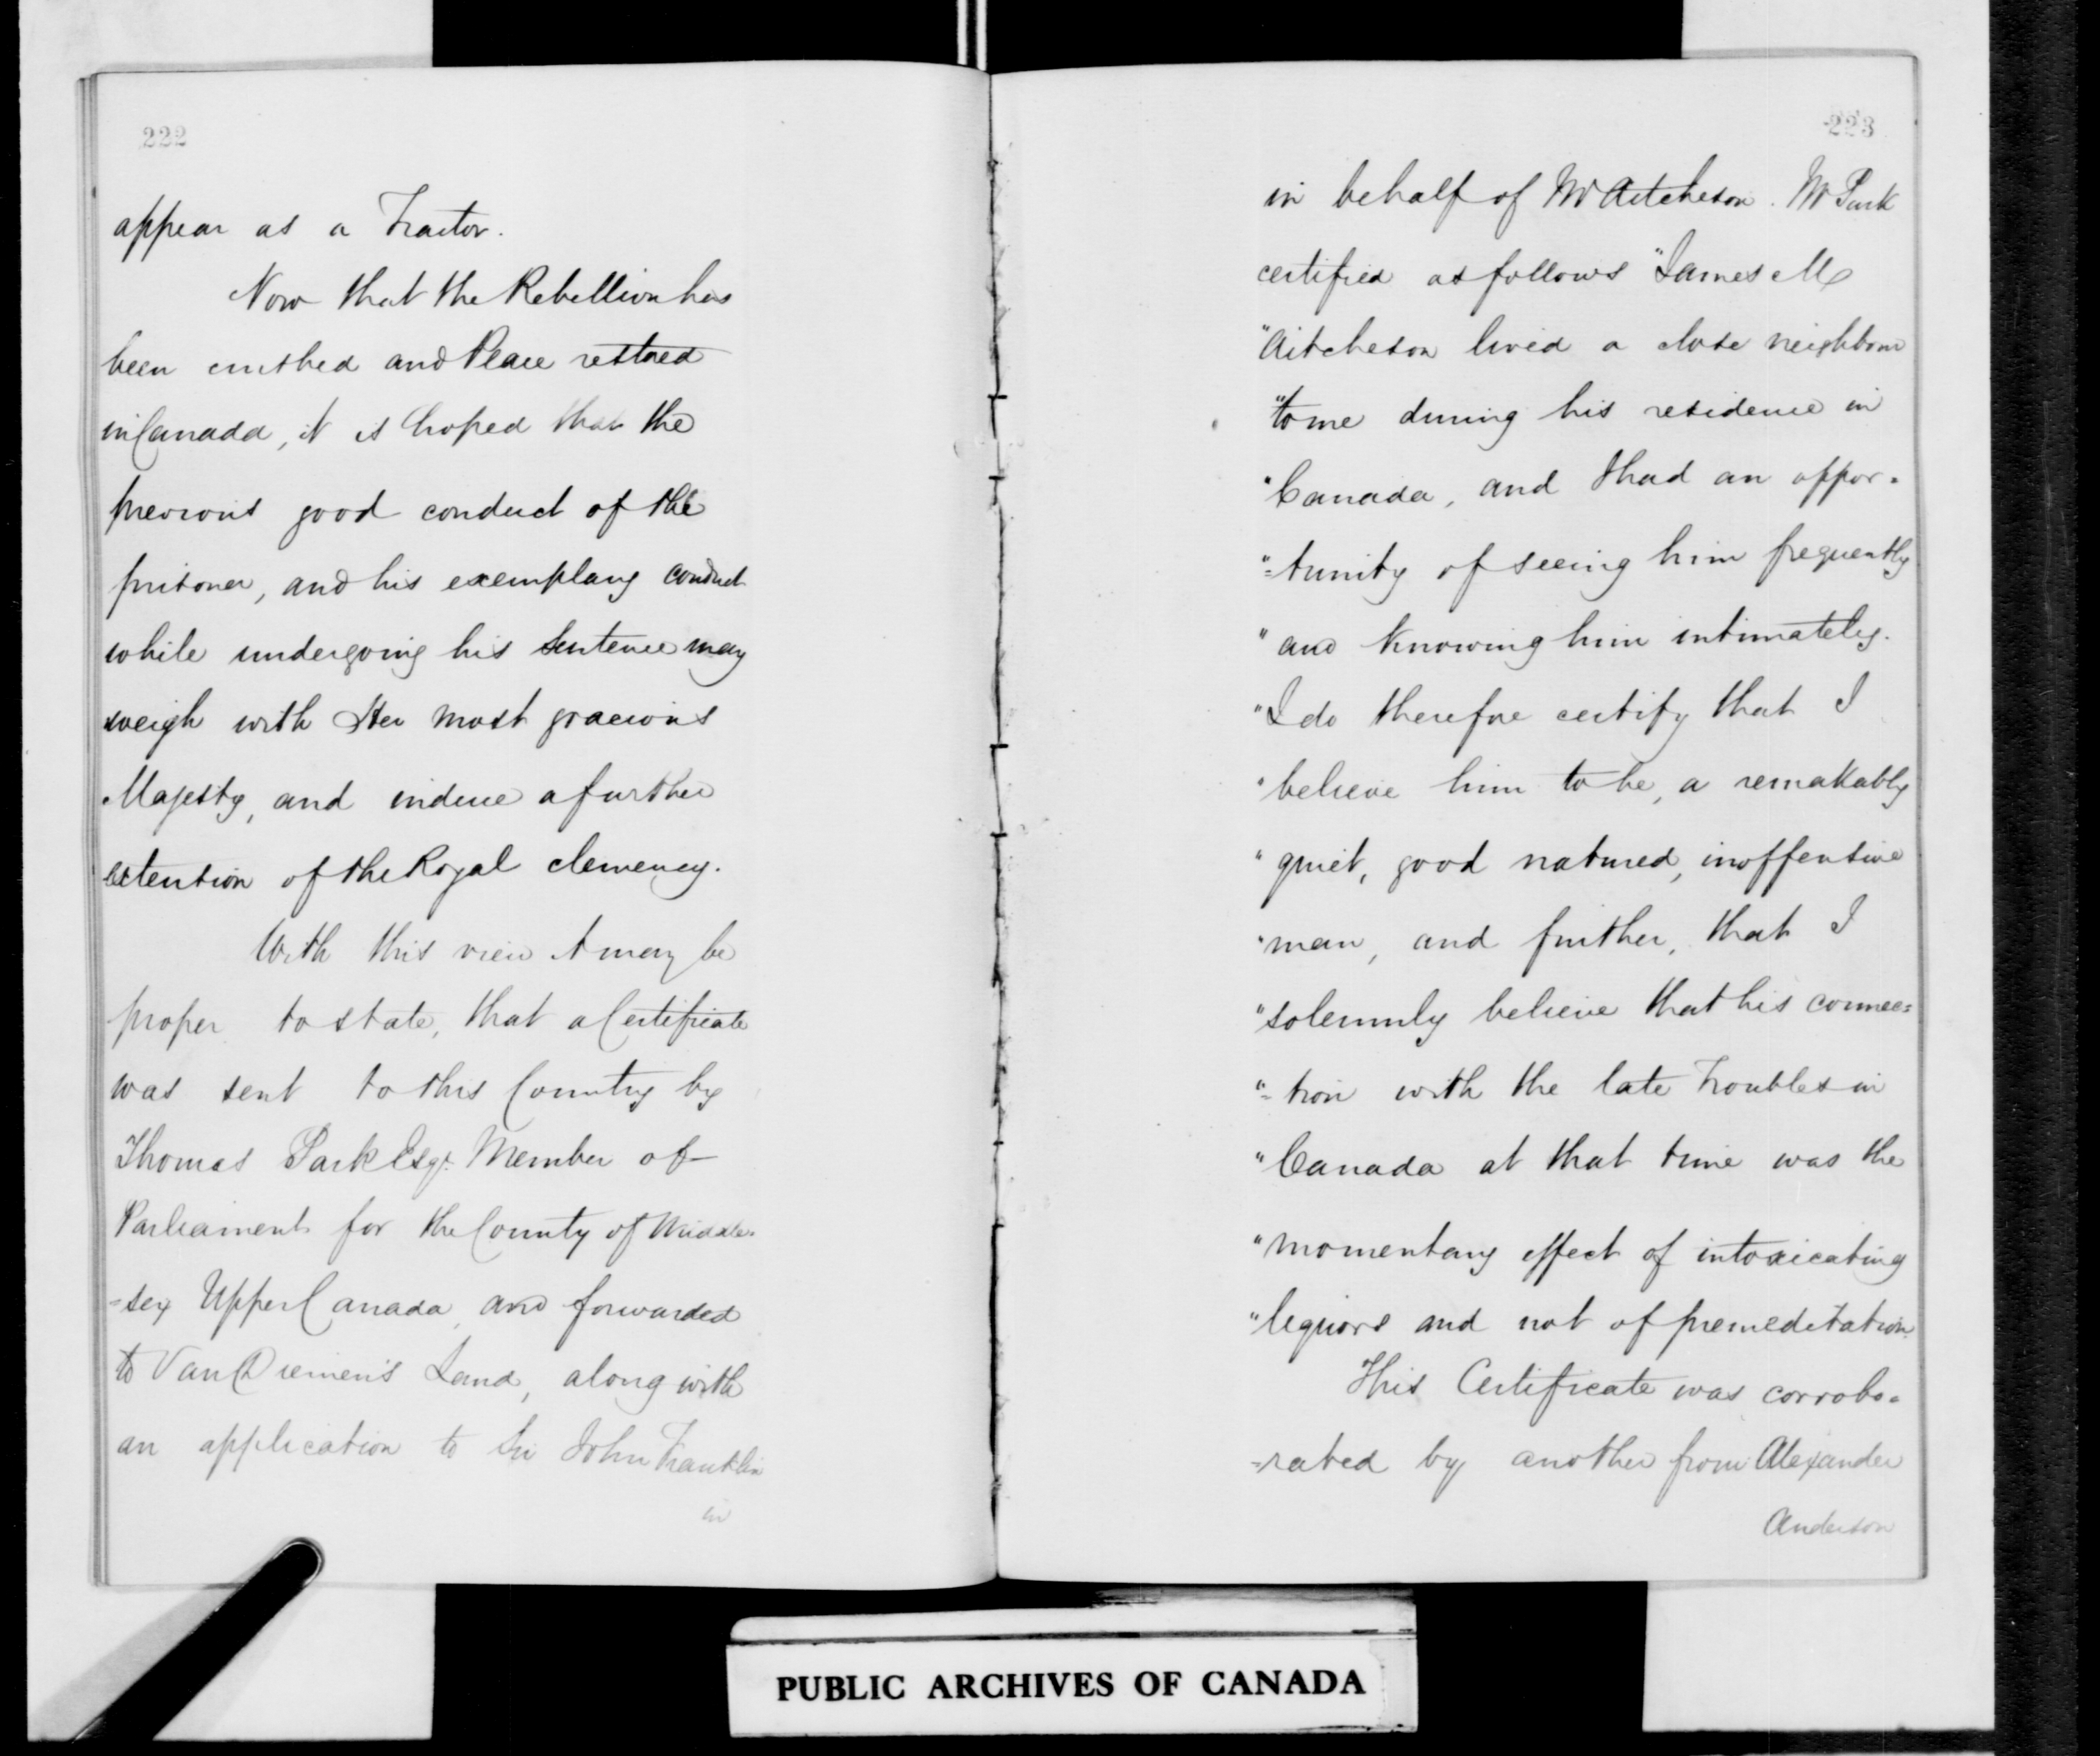 222
appear as a Traitor.
Now that the Rebellion has
been crushed and Peace restored
in Canada, it is hoped that the
previous good conduct of the
prisoner, and his exemplary conduct
while undergoing his sentence may
weigh with Her most gracious
Majesty, and induce a further
extention of the Royal clemency.
With this view it may be
proper to state, that a Certificate
was sent to this Country by
Thomas Park Esqr. Member of
Parliament for the County of Middle-
=sex Upper Canada, and forwarded
to Van Diemen's Land, along with
an application to Sir John Franklin
in
223
in behalf of Mr Aitcheson. Mr Park
certified as follows "James M
"Aitcheson lived a close neighbour
"to me during his residence in
"Canada, and I had an oppor=
"=tunity of seeing him frequently
"and Knowing him intimately.
"I do therefore certify that I
"believe him to be, a remakably
"quiet, good natured, inoffensive
"man, and further, that I
"solemnly believe that his connec=
"=tion with the late Troubles in
"Canada at that time was the
"momentary effect of intoxicating
"liquors and not of premeditation.
This Certificate was corrobo=
=rated by another from Alexander
Anderson
PUBLIC ARCHIVES OF CANADA